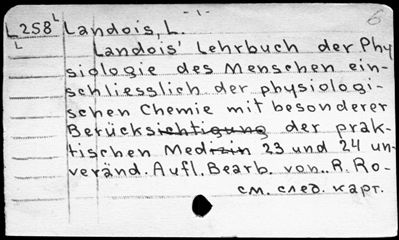 - 1 -
6
L258 Landois, L.
L Landois' Lehrbuch der Phy
siologie des Menschen ein-
schliesslich der physiologi-
schen Chemie mit besonderer
Berücksichtigung der prak-
tischen Medizin 23 und 24 un-
veränd. Aufl. Bearb. von.. R. Ro-
см. след. карт.